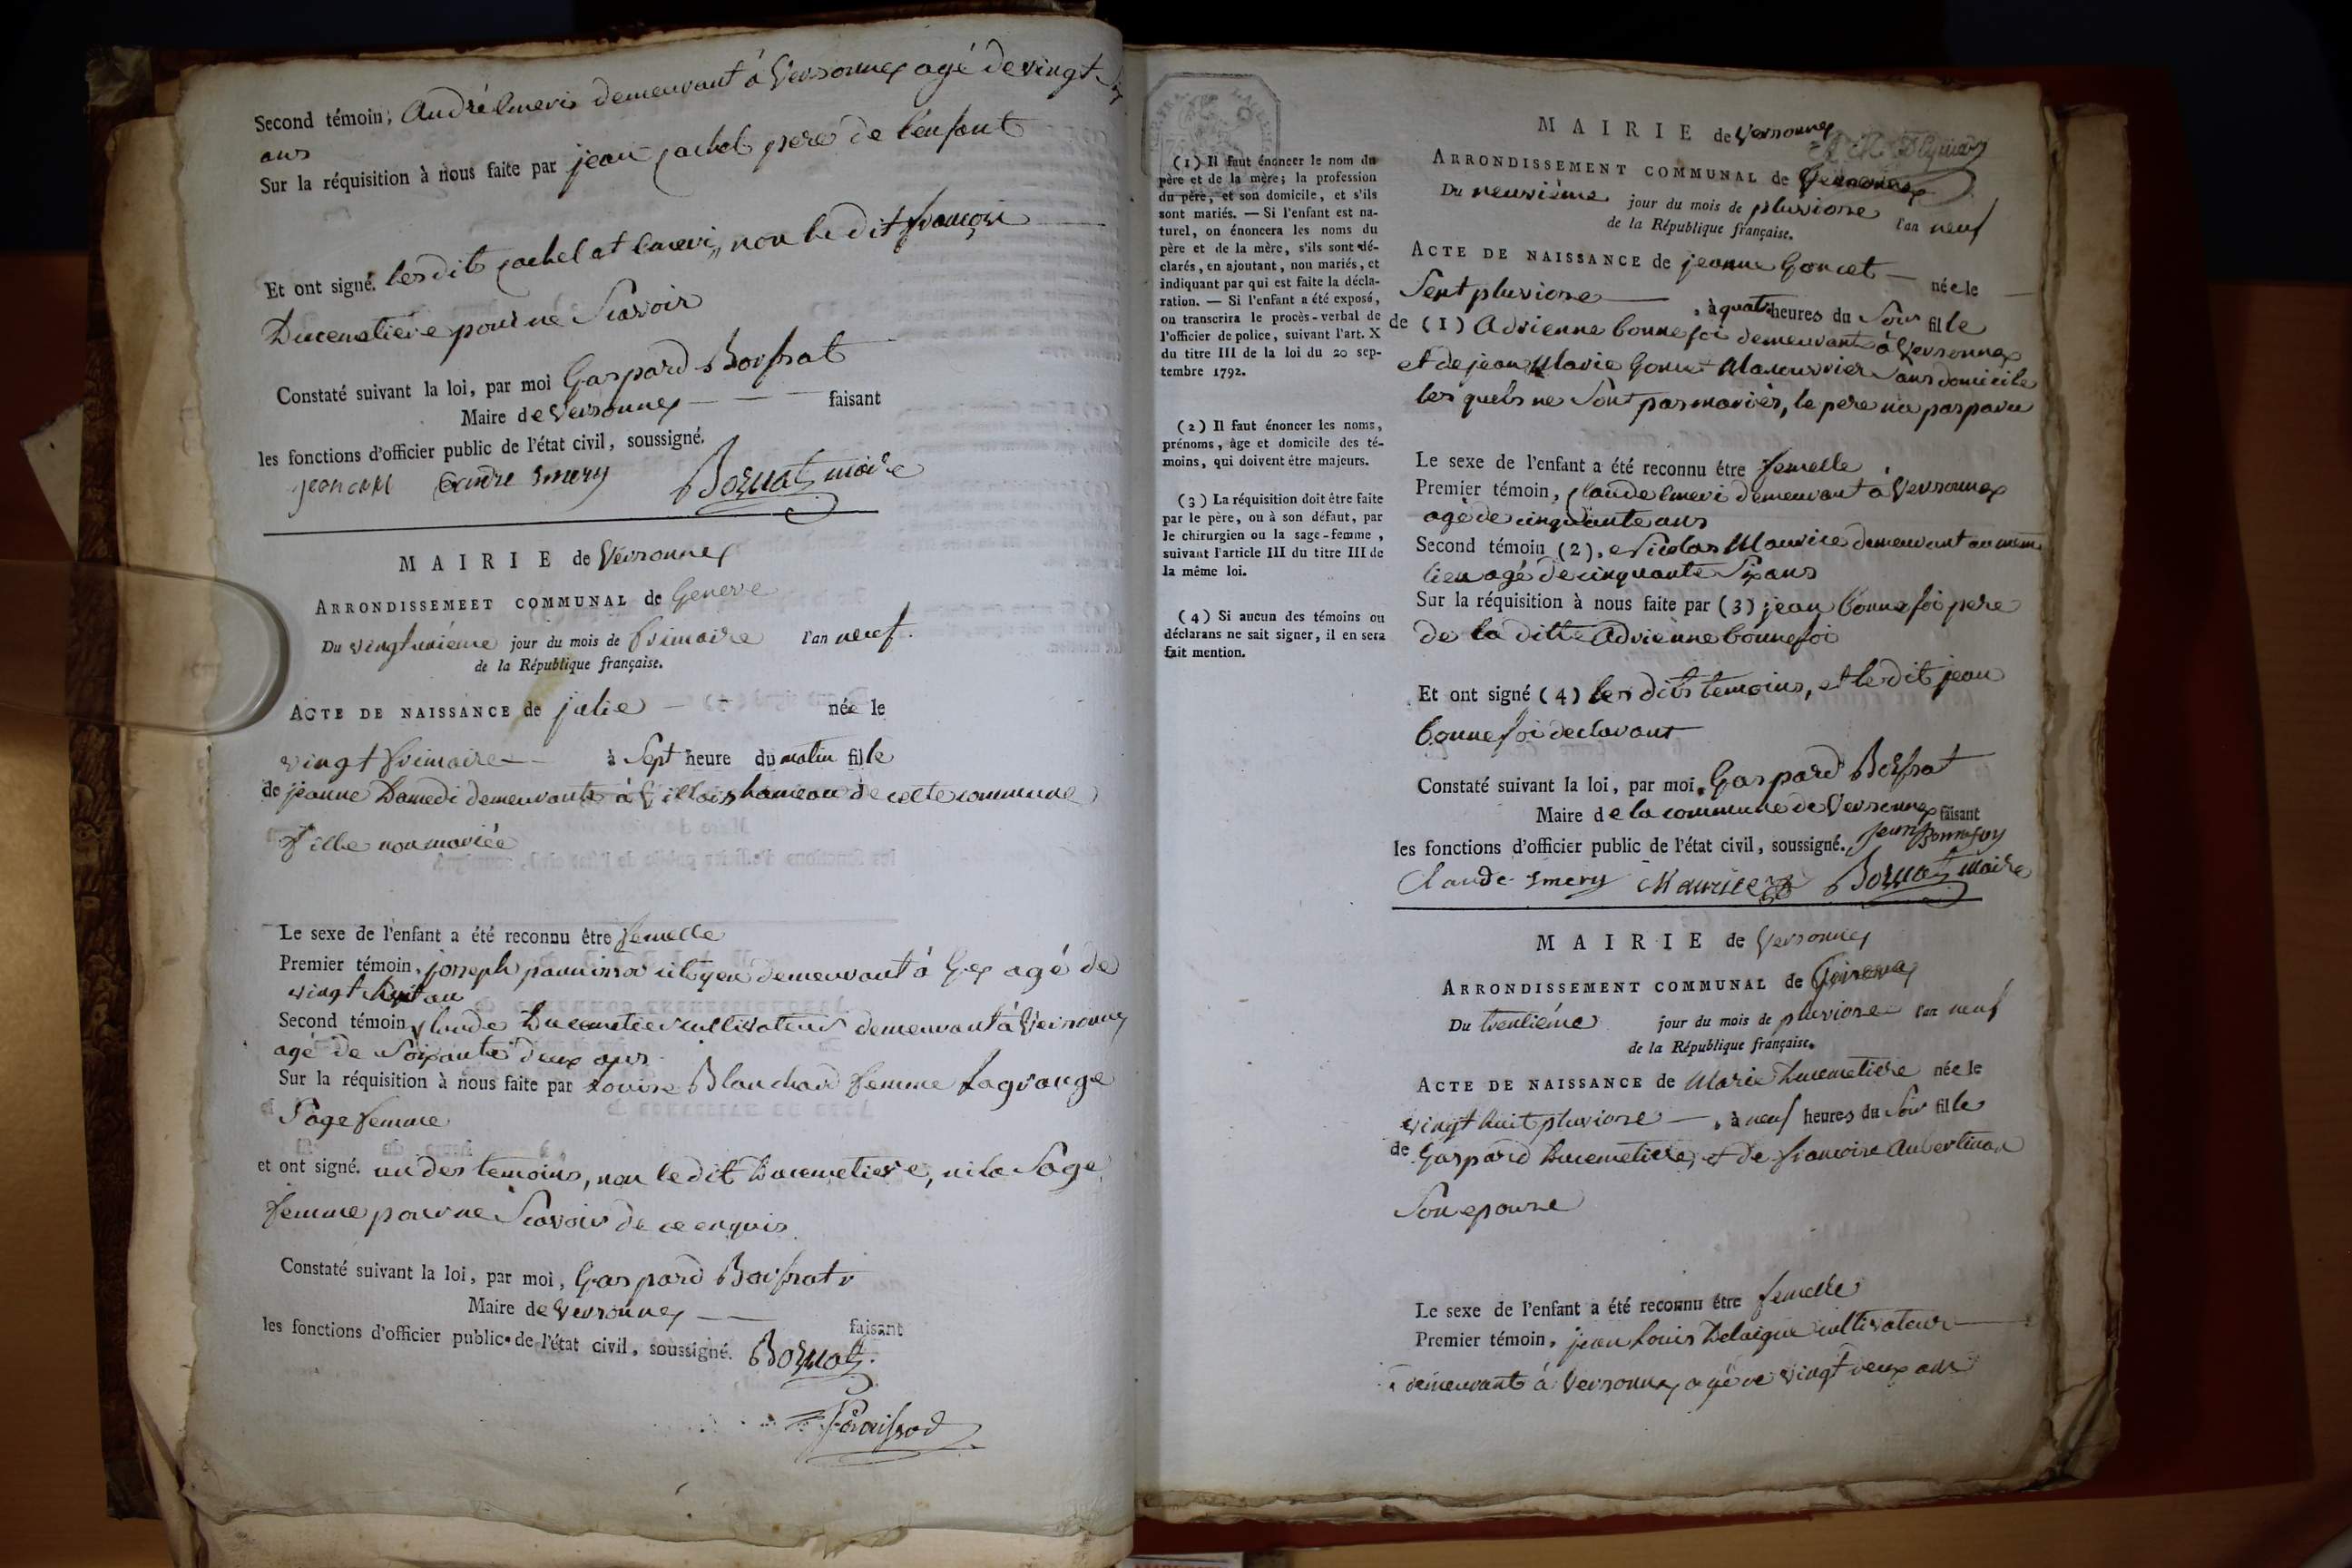 Second témoin, André Emeri demeurant á Versonnex agé de vingt
ans
Sur la réquisition à nous faite par jean jachel pere de l'enfant
Et ont signé. lesdits jachel et Emeri, non le dit françois
Ducemetiere pour ne Scavoir
Constaté suivant la loi, par moi Gaspard
Maire de Versonnex faisant
les fonctions d'officier public de l'état civil, soussigné.
andre Emery maire
MAIRIE de Versonnex
ARRONDISSEMEET COMMUNAL de Geneve
Du vingtunième jour du mois de frimaire l'an neuf.
de la République française.
ACTE DE NAISSANCE de julie née le
vingt frimaire à Sept heure du matin fille
de jeanne Damedi demeurante à Villars hameau de cette commune
fille non mariée
Le sexe de l'enfant a été reconnu être femelle
Premier témoin, joseph citoyen demeurant á Gex agé de
vingt huit an
Second témoin Claude Ducemetier cultivateur demeurant á Versonnex
agé de Soixante deux ans
Sur la réquisition à nous faite par Louise Blanchard femme Lagrange
Sage femme
et ont signé. un des temoins, non le dit Ducemetiere, ni la Sage
femme pour ne Scavoir de ce enquis
Constaté suivant la loi, par moi, Gaspard
Maire de Versonnex faisant
les fonctions d'officier public de l'état civil, soussigné.
(1) Il faut énoncer le nom du
père et de la mère; la profession
du père, et son domicile, et s'ils
sont mariés. — Si l'enfant est na-
turel, on énoncera les noms du
père et de la mère, s'ils sont dé-
clarés, en ajoutant, non mariés, et
indiquant par qui est faite la décla-
ration. — Si l'enfant a été exposé,
on transcrira le procès-verbal de
l'officier de police, suivant l'art. X
du titre III de la loi du 20 sep-
tembre 1792.
(2) Il faut énoncer les noms,
prénoms, âge et domicile des té-
moins, qui doivent être majeurs.
(3) La réquisition doit être faite
par le père, ou à son défaut, par
le chirurgien ou la sage-femme,
suivant l'article III du titre III de
la même loi.
(4) Si aucun des témoins ou
déclarans ne sait signer, il en sera
fait mention.
MAIRIE de Versonnex
ARRONDISSEMENT COMMUNAL de
Du neuvième jour du mois de pluviose l'an neuf
de la République française.
ACTE DE NAISSANCE de jeanne Goncet née le
Sept pluviose, à quatre heures du Soir fille
de (1) Adrienne bonnefoi demeurante à Versonnex
et de jean Marie Goncet Manouvrier Sans domicile
les quels ne Sont pas mariés, le pere n'a pas paru
Le sexe de l'enfant a été reconnu être femelle
Premier témoin, Claude Emeri demeurant á Versonnex
agé de cinquante ans
Second témoin (2), Nicolas Maurice demeurant au meme
lieu agé de cinquante Six ans
Sur la réquisition à nous faite par (3) jean bonnefoi pere
de la ditte Adrienne bonnefoi
Et ont signé (4) les dits temoins, et le dit jean
bonnefoi declarant
Constaté suivant la loi, par moi, Gaspard
Maire de la commune de Versonnex faisant
les fonctions d'officier public de l'état civil, soussigné. Jean Bonnefoy
Claude Emery Maurice maire
MAIRIE de Versonnex
ARRONDISSEMENT COMMUNAL de
Du trentiéme jour du mois de pluviose l'an neuf
de la République française.
ACTE DE NAISSANCE de Marie Ducemetiere née le
vingt huit pluviose, à neuf heures du Soir fille
de Gaspard Ducemetiere, et de francoise
Son epouse
Le sexe de l'enfant a été reconnu être femelle
Premier témoin, jean Louis Delaigue cultivateur
demeurant á Versonnex agé de vingt deux ans